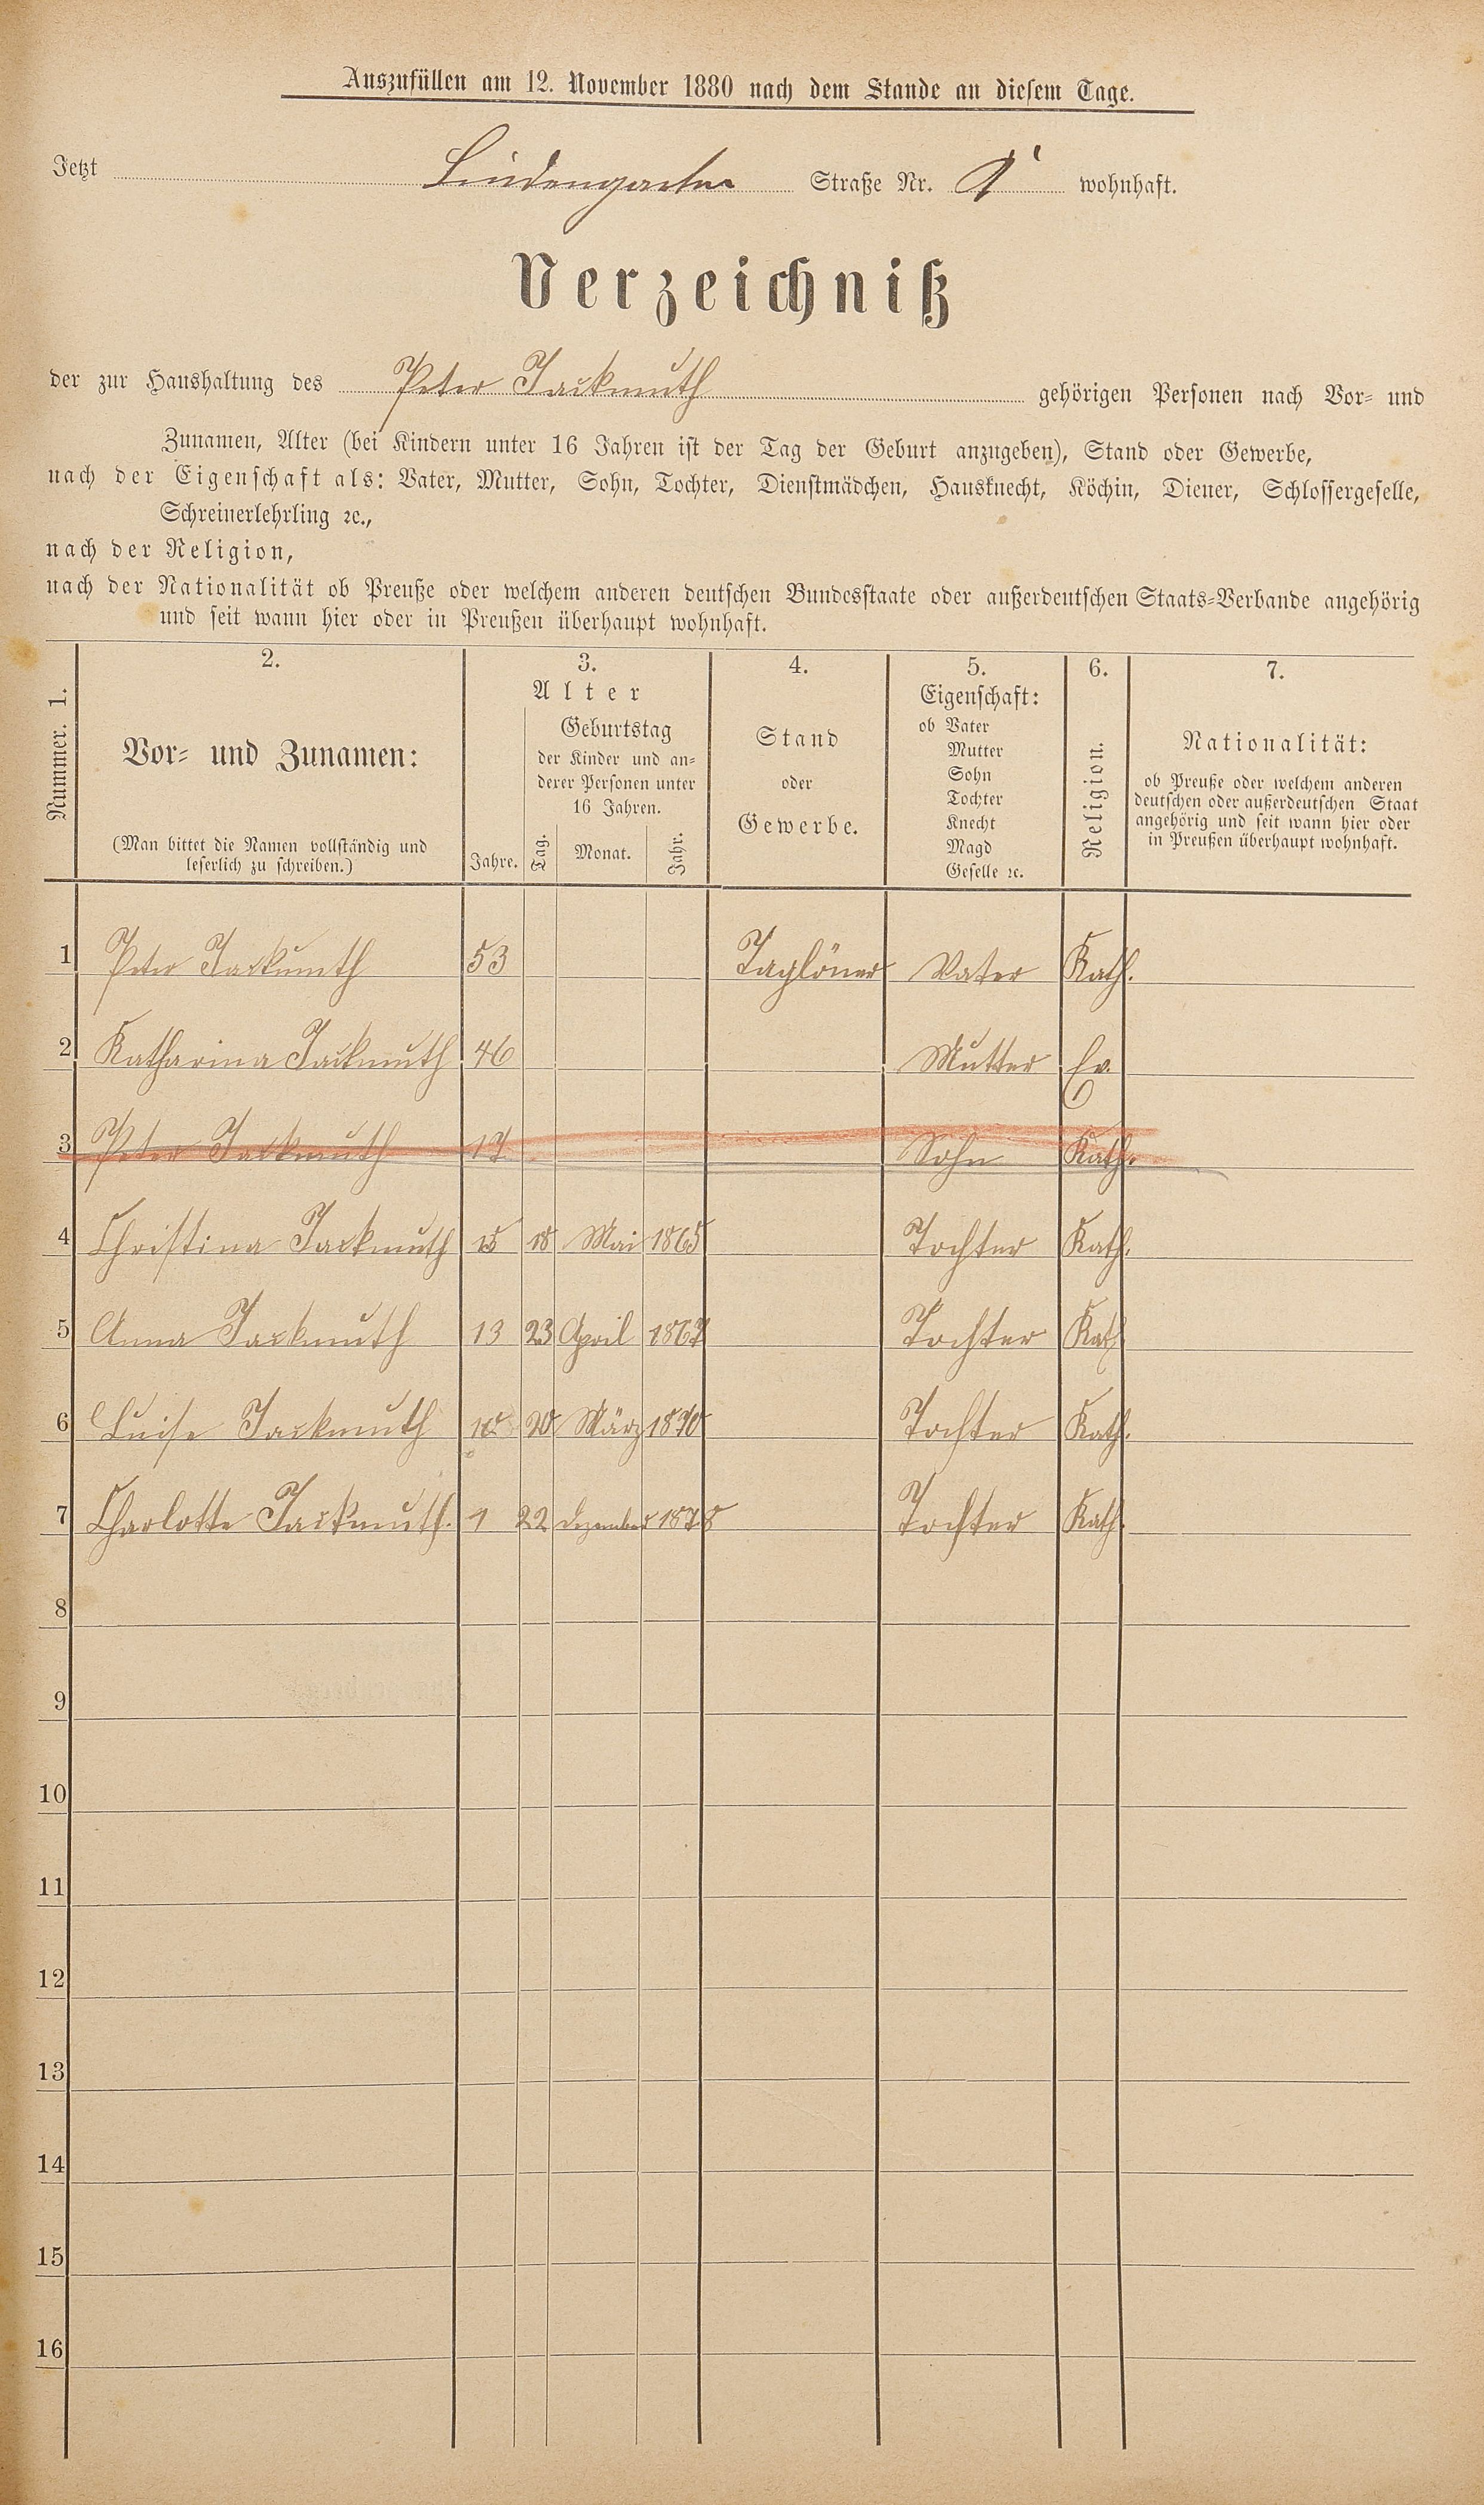 Auszufüllen am 12. November 1880 nach dem Stande an diesem Tage.
Jetzt Lindengarten Straße Nr. 1 wohnhaft.
Verzeichniß
der zur Haushaltung des Peter Jackmuth gehörigen Personen nach Vor- und
Zunamen, Alter (bei Kindern unter 16 Jahren ist der Tag der Geburt anzugeben), Stand oder Gewerbe,
nach der Eigenschaft als: Vater, Mutter, Sohn, Tochter, Dienstmädchen, Hausknecht, Köchin, Diener, Schlossergeselle,
Schreinerlehrling ꝛc.,
nach der Religion,
nach der Nationalität ob Preuße oder welchem anderen deutschen Bundesstaate oder außerdeutschen Staats-Verbande angehörig
und seit wann hier oder in Preußen überhaupt wohnhaft.
Nummer. 1.
2.
Vor- und Zunamen:
(Man bittet die Namen vollständig und
leserlich zu schreiben.)
3.
Alter
Jahre.
Geburtstag
der Kinder und an-
derer Personen unter
16 Jahren.
Tag. Monat. Jahr.
4.
Stand
oder
Gewerbe.
5.
Eigenschaft:
ob Vater
Mutter
Sohn
Tochter
Knecht
Magd
Geselle ꝛc.
6.
Religion.
7.
Nationalität:
ob Preuße oder welchem anderen
deutschen oder außerdeutschen Staat
angehörig und seit wann hier oder
in Preußen überhaupt wohnhaft.
1 Peter Jackmuth 53 Taglöner Vater Kath.
2 Katharina Jackmuth 46 Mutter Ev.
3 Peter Jackmuth 17 Sohn Kath.
4 Christina Jackmuth 15 18 Mai 1865 Tochter Kath.
5 Anna Jackmuth 13 23 April 1867 Tochter Kath
6 Luise Jackmuth 10 20 März 1870 Tochter Kath.
7 Charlotte Jackmuth. 1 22 Dezember 1878 Tochter Kath.
8
9
10
11
12
13
14
15
16